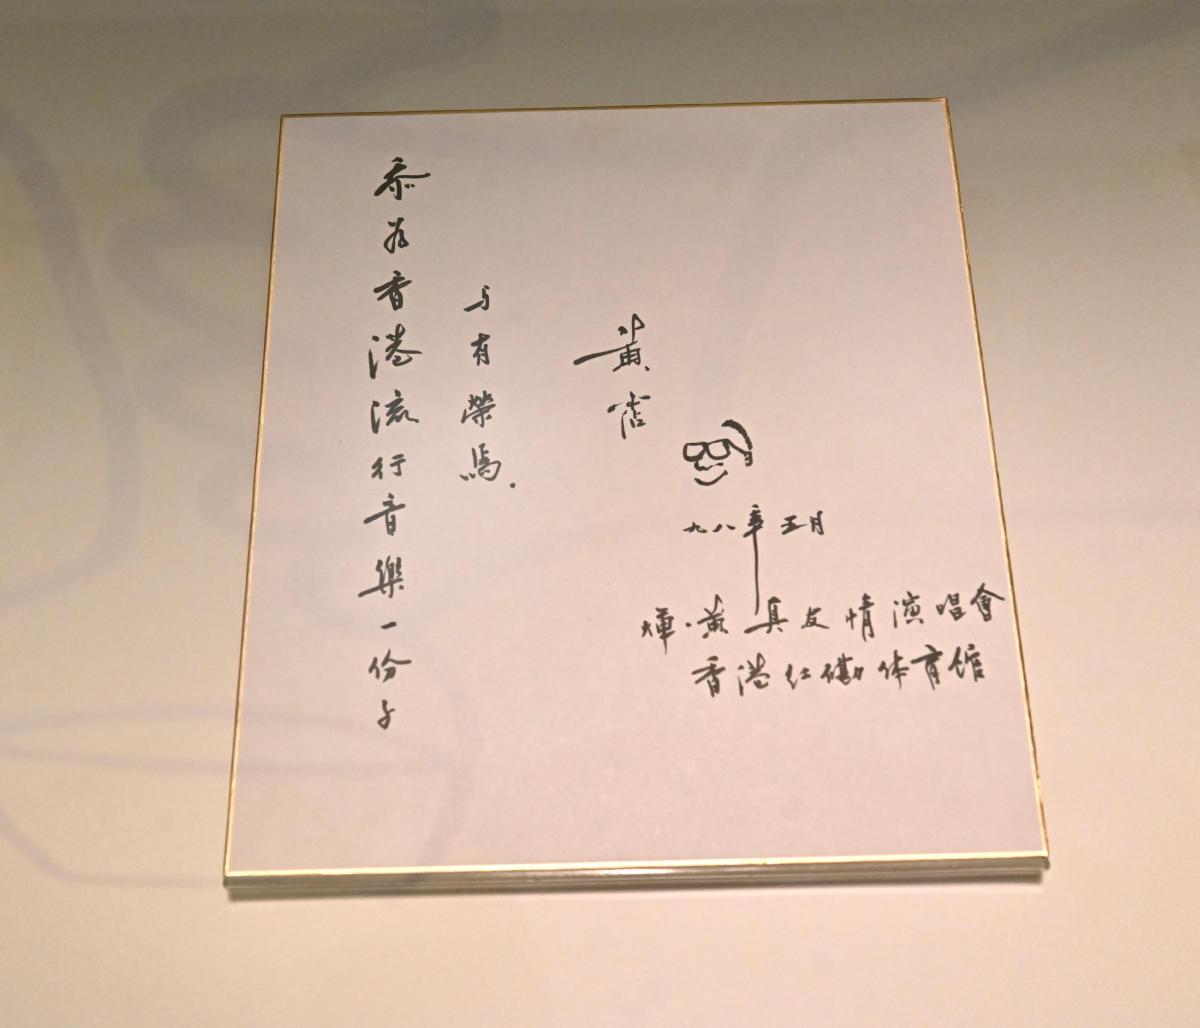 忝为香港流行音樂一份子
与有榮焉.
黄霑
九八年五月
煇·黄真友情演唱會
香港红磡体育馆